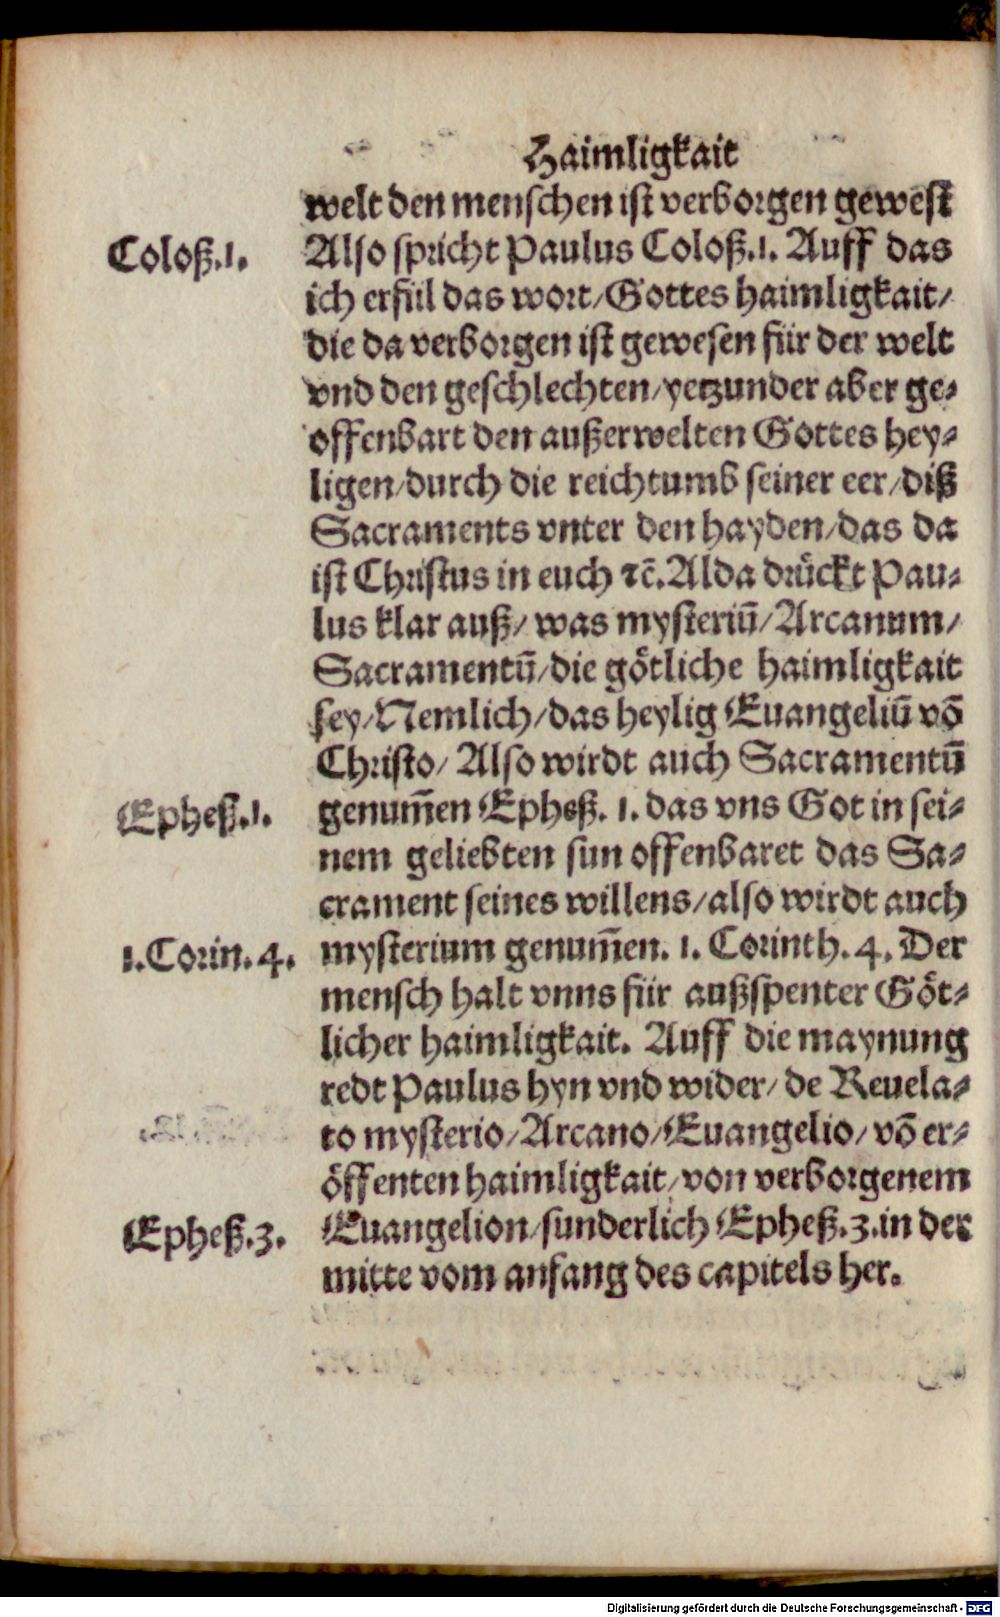 Haimligkait
welt den menschen ist verborgen gewest
Coloß.1.
Also spricht Paulus Coloß.1. Auff das
ich erfül das wort/Gottes haimligkait/
die da verborgen ist gewesen für der welt
vnd den geschlechten/yetzunder aber ge⸗
offenbart den außerwelten Gottes hey⸗
ligen/durch die reichtumb seiner eer/diß
Sacraments vnter den hayden/das da
ist Christus in euch ⁊c̄. Alda drückt Pau⸗
lus klar auß/ was mysteriū/Arcanum/
Sacramentū/die götliche haimligkait
sey/Nemlich/das heylig Euangeliū vō
Christo/ Also wirdt auch Sacramentū
Epheß.1.
genum̄en Epheß. 1. das vns Got in sei⸗
nem geliebten sun offenbaret das Sa⸗
crament seines willens/also wirdt auch
1.Corin.4.
mysterium genum̄en. 1. Corinth.4. Der
mensch halt vnns für außspenter Göt⸗
licher haimligkait. Auff die maynung
redt Paulus hyn vnd wider/ de Reuela⸗
to mysterio/Arcano/Euangelio/ vō er⸗
öffenten haimligkait/von verborgenem
Epheß.3.
Euangelion/sunderlich Epheß.3.in der
mitte vom anfang des capitels her.
Digitalisierung gefördert durch die Deutsche Forschungsgemeinschaft - DFG